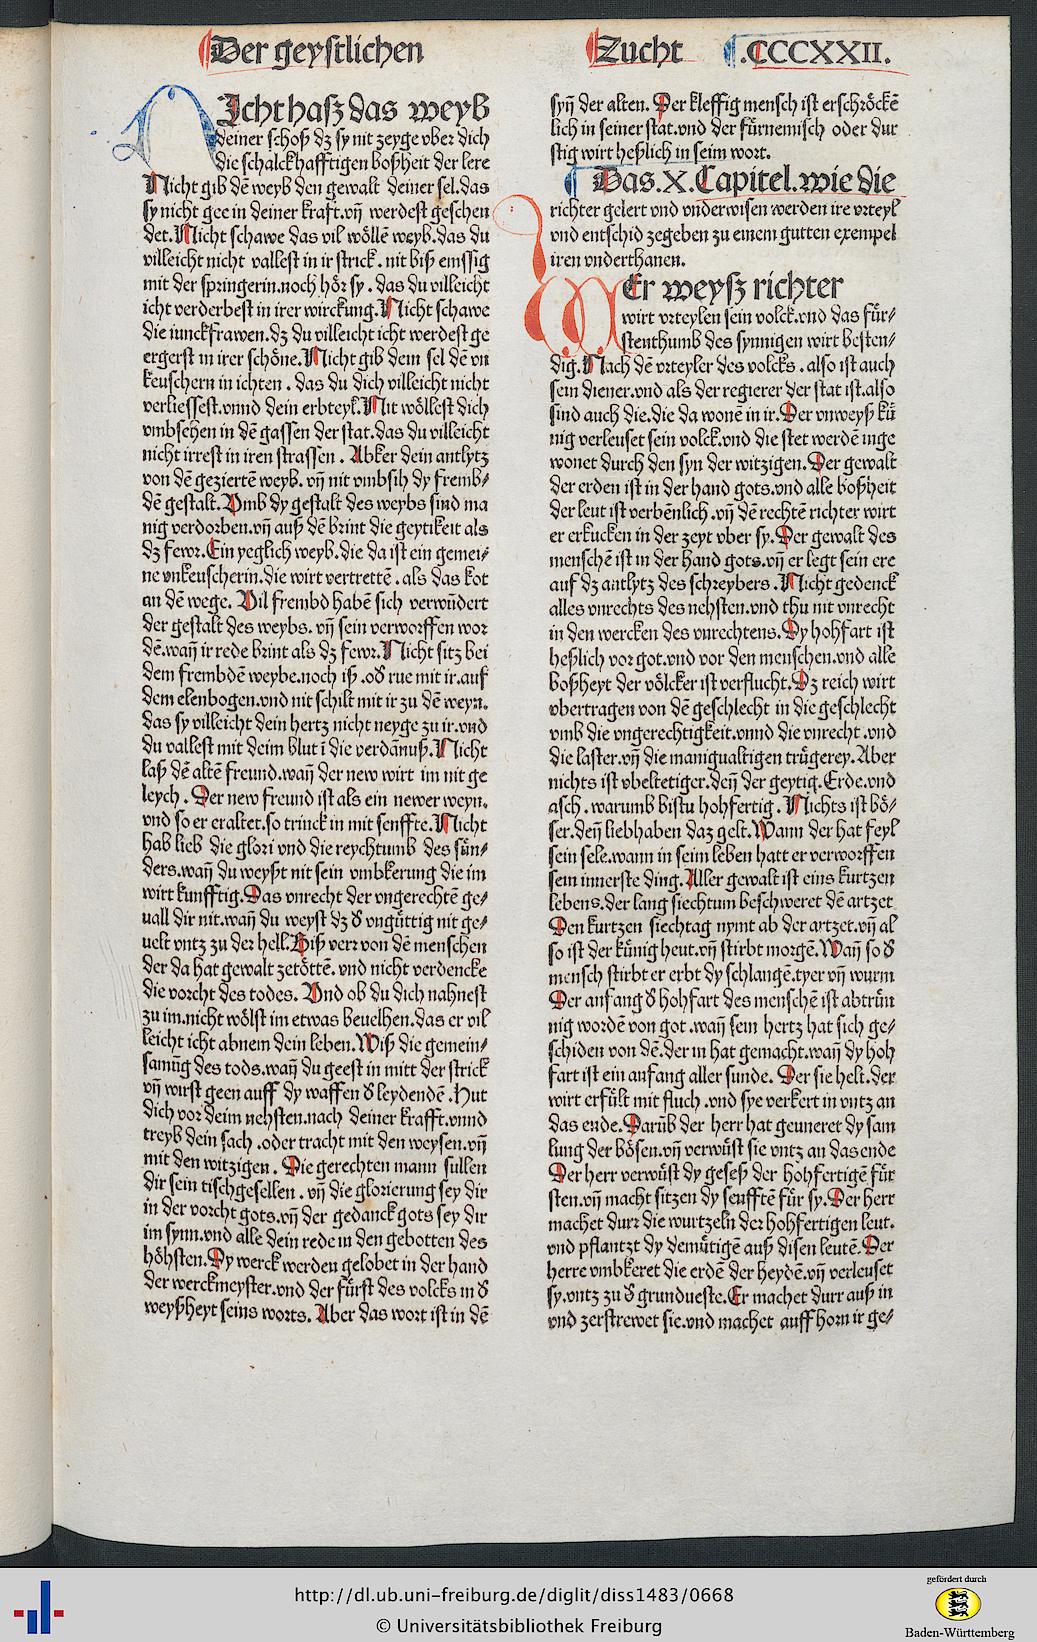 Der geystlichen Zucht .CCCXXII.
NIcht hasz das weyb
deiner schoß dz sy nit zeyge vber dich
die schalckhafftigen boßheit der lere
Nicht gib dē weyb den gewalt deiner sel.das
sy nicht gee in deiner kraft.vn̄ werdest geschen
det.Nicht schawe das vil wöllē weyb.das du
villeicht nicht vallest in ir strick. nit biß emssig
mit der springerin.noch hör sy. das du villeicht
icht verderbest in irer wirckung.Nicht schawe
die iunckfrawen.dz du villeicht icht werdest ge
ergerst in irer schöne.Nicht gib dem sel dē vn
keuschern in ichten. das du dich villeicht nicht
verliessest.vnnd dein erbteyl.Nit wöllest dich
vmbsehen in dē gassen der stat.das du villeicht
nicht irrest in iren strassen. Abker dein antlytz
von dē geziertē weyb. vn̄ nit vmbsih dy fremb⸗
dē gestalt.Vmb dy gestalt des weybs sind ma
nig verdorben.vn̄ auß dē brint die geytikeit als
dz fewr.Ein yeglich weyb.die da ist ein gemei⸗
ne vnkeuscherin.die wirt vertrettē. als das kot
an dē wege. Vil frembd habē sich verwūdert
der gestalt des weybs. vn̄ sein verworffen wor
dē.wan̄ ir rede brint als dz fewr.Nicht sitz bei
dem frembdē weybe.noch iß .od̄ rue mit ir.auf
dem elenbogen.vnd nit schilt mit ir zu dē weyn.
das sy villeicht dein hertz nicht neyge zu ir.vnd
du vallest mit deim blut ī die verdānuß.Nicht
laß dē altē freund.wan̄ der new wirt im nit ge
leych. Der new freund ist als ein newer weyn.
vnd so er eraltet.so trinck in mit senffte.Nicht
hab lieb die glori vnd die reychtumb des sün⸗
ders.wan̄ du weyßt nit sein vmbkerung die im
wirt kunfftig.Das vnrecht der vngerechtē ge⸗
uall dir nit.wan̄ du weyst dz d̄ vngüttig nit ge⸗
uelt vntz zu der hell.Biß verr von dē menschen
der da hat gewalt zetöttē. vnd nicht verdencke
die vorcht des todes. Vnd ob du dich nahnest
zu im.nicht wölst im etwas beuelhen.das er vil
leicht icht abnem dein leben.Wiß die gemein⸗
samūg des tods.wan̄ du geest in mitt der strick
vn̄ wurst geen auff dy waffen d̄ leydendē .Hut
dich vor deim nehsten.nach deiner krafft.vnnd
treyb dein sach .oder tracht mit den weysen.vn̄
mit den witzigen. Die gerechten mann sullen
dir sein tischgesellen. vn̄ die glorierung sey dir
in der vorcht gots.vn̄ der gedanck gots sey dir
im synn.vnd alle dein rede in den gebotten des
höhsten.Dy werck werden gelobet in der hand
der werckmeyster.vnd der fürst des volcks in d̄
weyßheyt seins worts. Aber das wort ist in dē
syn̄ der alten. Der kleffig mensch ist erschröckē
lich in seiner stat.vnd der fürnemisch oder dur
stig wirt heßlich in seim wort.
Das.X.Capitel.wie die
richter gelert vnd vnderwisen werden ire vrteyl
vnd entschid zegeben zu einem gutten exempel
iren vnderthanen.
WEr weysz richter
wirt vrteylen sein volck.vnd das für⸗
stenthumb des synnigen wirt besten⸗
dig.Nach dē vrteyler des volcks. also ist auch
sein diener.vnd als der regierer der stat ist.also
sind auch die.die da wonē in ir.Der vnweyß kü
nig verleuset sein volck.vnd die stet werdē inge
wonet durch den syn der witzigen.Der gewalt
der erden ist in der hand gots.vnd alle boßheit
der leut ist verbēnlich.vn̄ dē rechtē richter wirt
er erkucken in der zeyt vber sy.Der gewalt des
menschē ist in der hand gots.vn̄ er legt sein ere
auf dz antlytz des schreybers. Nicht gedenck
alles vnrechts des nehsten.vnd thu nit vnrecht
in den wercken des vnrechtens.Dy hohfart ist
heßlich vor got.vnd vor den menschen.vnd alle
boßheyt der völcker ist verflucht.Dz reich wirt
vbertragen von dē geschlecht in die geschlecht
vmb die vngerechtigkeit.vnnd die vnrecht .vnd
die laster.vn̄ die manigualtigen trügerey.Aber
nichts ist vbeltetiger.den̄ der geytig.Erde.vnd
asch. warumb bistu hohfertig. Nichts ist bö⸗
ser.den̄ liebhaben daz gelt.Wann der hat feyl
sein sele.wann in seim leben hatt er verworffen
sein innerste ding.Aller gewalt ist eins kurtzen
lebens.der lang siechtum beschweret dē artzet
Den kurtzen siechtag nymt ab der artzet.vn̄ al
so ist der künig heut.vn̄ stirbt morgē.Wan̄ so d̄
mensch stirbt er erbt dy schlangē.tyer vn̄ wurm
Der anfang d̄ hohfart des menschē ist abtrün
nig wordē von got.wan̄ sein hertz hat sich ge⸗
schiden von dē.der in hat gemacht.wan̄ dy hoh
fart ist ein anfang aller sunde. Der sie helt.der
wirt erfült mit fluch .vnd sye verkert in vntz an
das ende.Darūb der herr hat geuneret dy sam
lung der bösen.vn̄ verwüst sie vntz an das ende
Der herr verwüst dy geseß der hohfertigē für
sten.vn̄ macht sitzen dy senfftē für sy.Der herr
machet durr die wurtzeln der hohfertigen leut.
vnd pflantzt dy demütigē auß disen leutē.Der
herre vmbkeret die erdē der heydē.vn̄ verleuset
sy.vntz zu d̄ grundueste.Er machet durr auß in
vnd zerstrewet sie.vnd machet auffhorn ir ge⸗
http://dl.ub.uni-freiburg.de/diglit/diss1483/0668
© Universitätsbibliothek Freiburg
gefördert durch
Baden-Württemberg